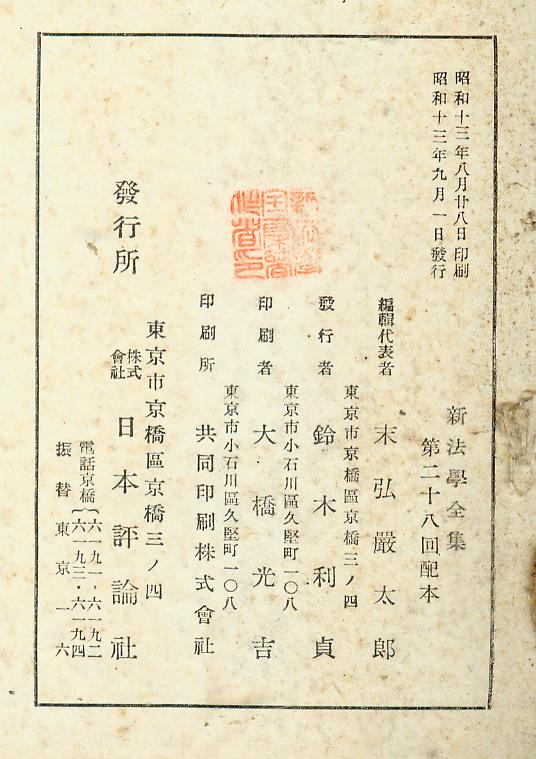 昭和十三年八月廿八日印刷
昭和十三年九月一日發行
新法學全集
第二十八回配本
編輯代表者 末弘嚴太郎
東京市京橋區京橋三ノ四
發行者 鈴木利貞
東京市小石川區久堅町一〇八
印刷者 大橋光吉
東京市小石川區久堅町一〇八
印刷所 共同印刷株式會社
發行所
東京市京橋區京橋三ノ四
株式會社 日本評論社
電話京橋{六一九一・六一九二
六一九三・六一九四
振替東京一六